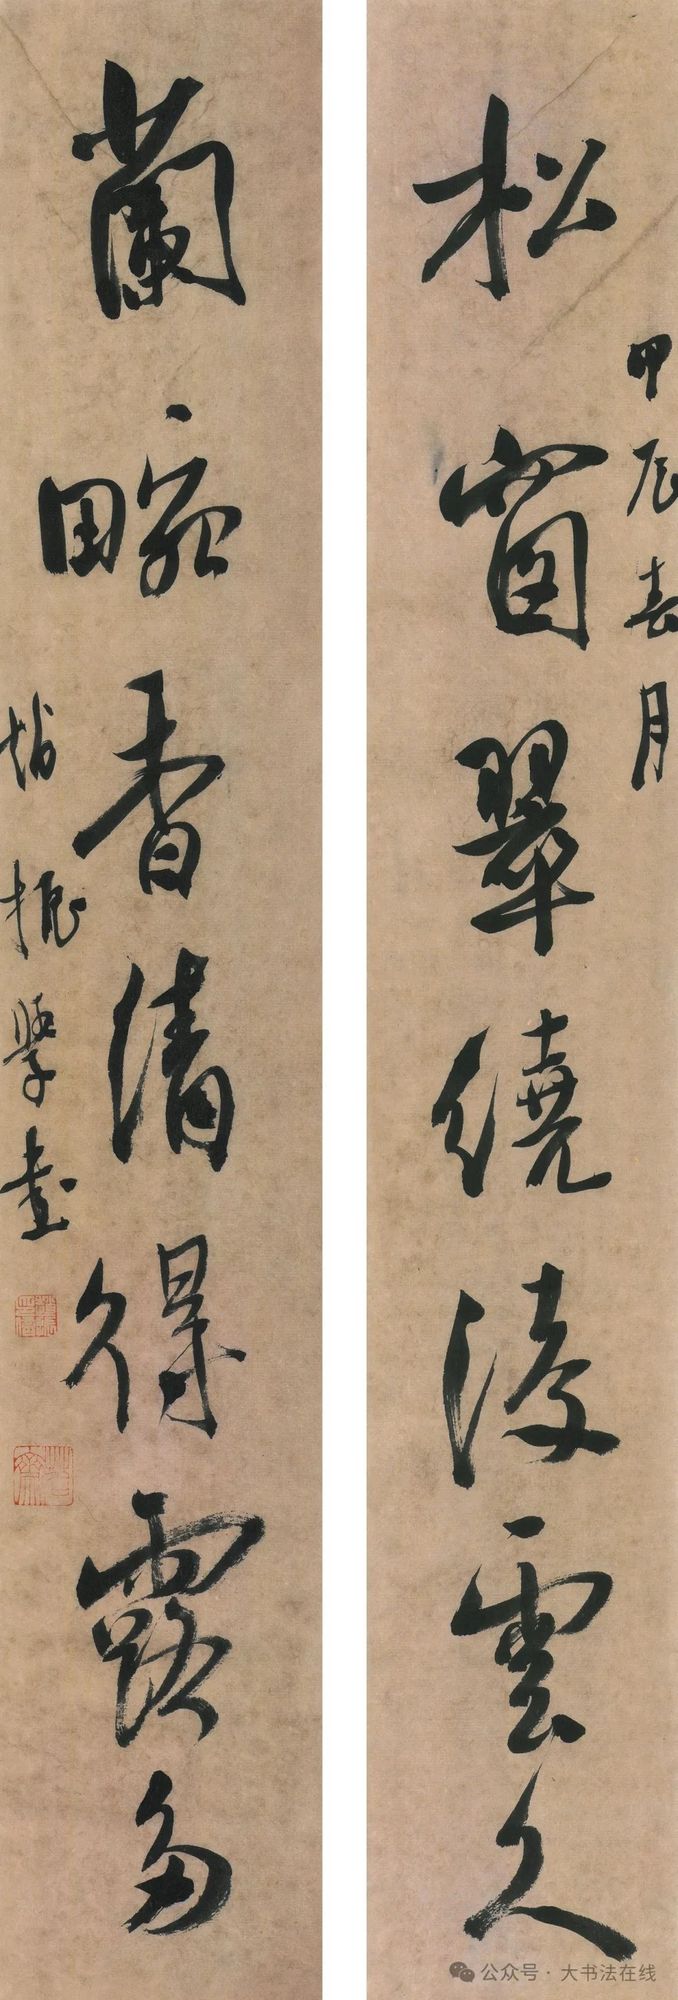 松窗翠繞淩雲久
甲辰春月
蘭畹香清得露多
趙振學書
公众号·大书法在线